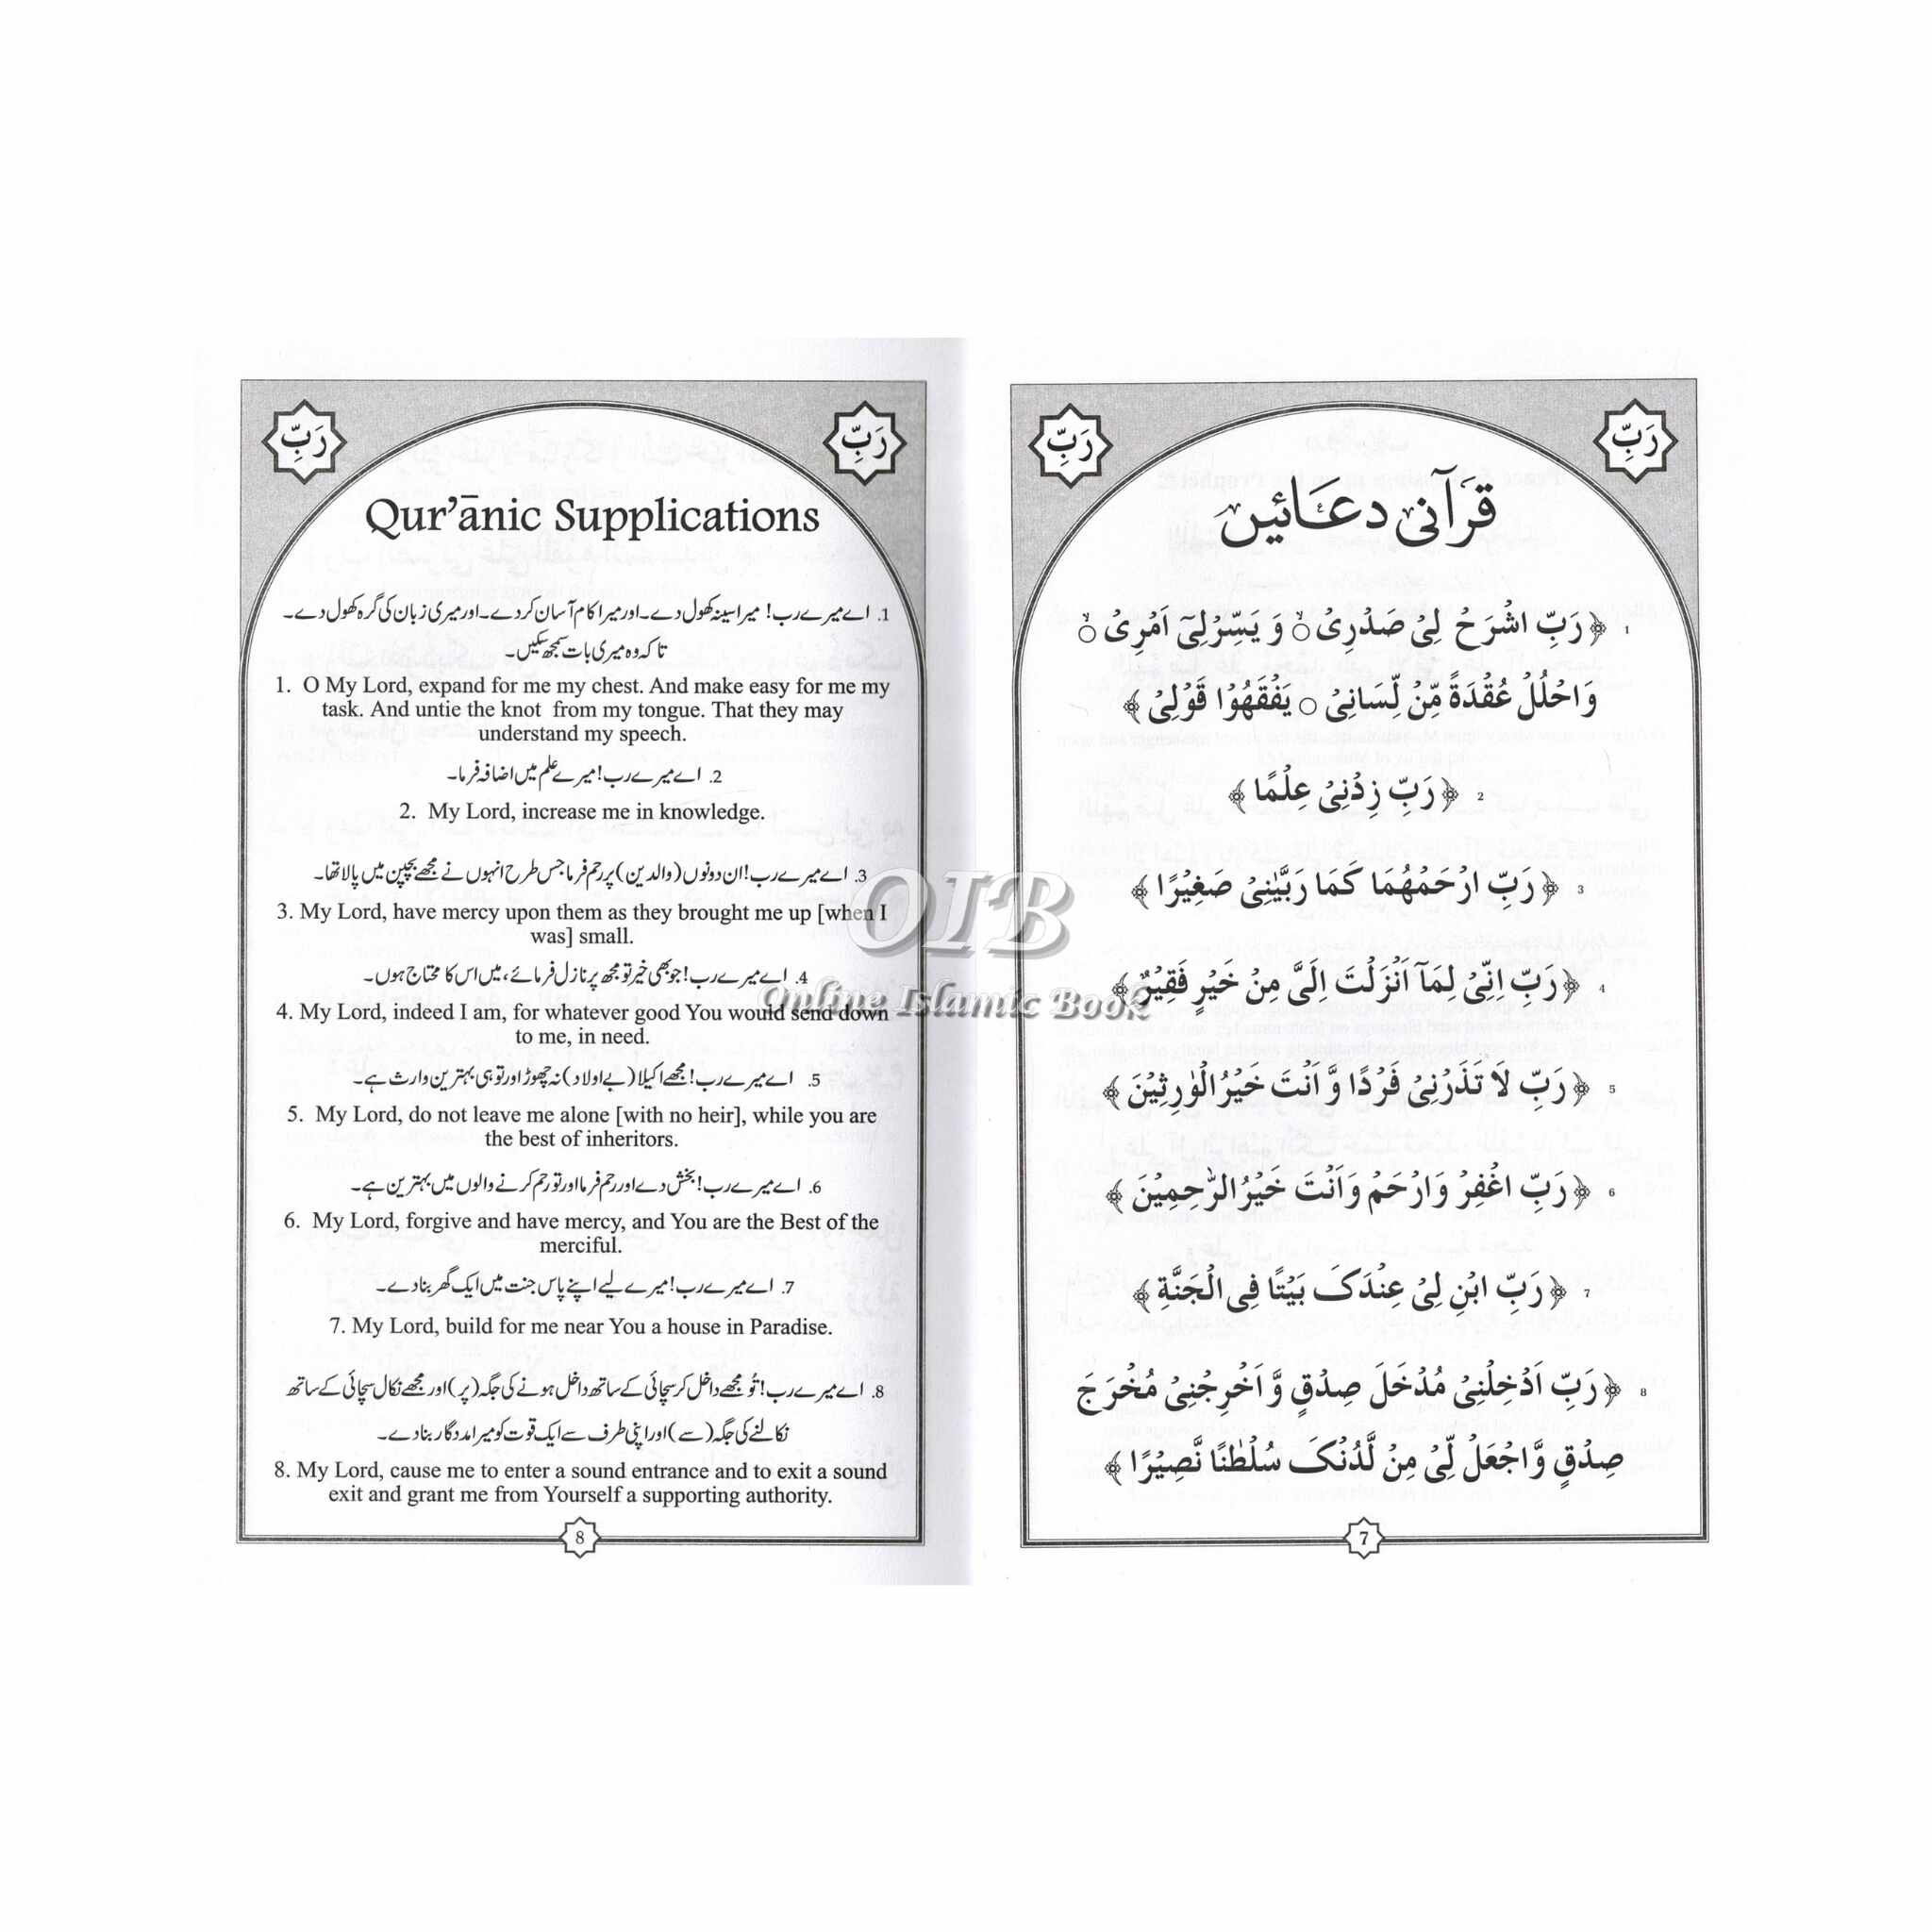 رَبِّ
رَبِّ
قرآنی دعائیں
1 ﴿رَبِّ اشۡرَحۡ لِیۡ صَدۡرِیۡ ۙ وَ یَسِّرۡ لِیۡۤ اَمۡرِیۡ ۙ
وَاحۡلُلۡ عُقۡدَةً مِّنۡ لِّسَانِیۡ ۙ یَفۡقَهُوۡا قَوۡلِیۡ﴾
2 ﴿رَبِّ زِدۡنِیۡ عِلۡمًا﴾
3 ﴿رَبِّ ارۡحَمۡهُمَا کَمَا رَبَّیٰنِیۡ صَغِیۡرًا﴾
4 ﴿رَبِّ اِنِّیۡ لِمَاۤ اَنۡزَلۡتَ اِلَیَّ مِنۡ خَیۡرٍ فَقِیۡرٌ﴾
5 ﴿رَبِّ لَا تَذَرۡنِیۡ فَرۡدًا وَّ اَنۡتَ خَیۡرُ الۡوٰرِثِیۡنَ﴾
6 ﴿رَبِّ اغۡفِرۡ وَارۡحَمۡ وَاَنۡتَ خَیۡرُ الرّٰحِمِیۡنَ﴾
7 ﴿رَبِّ ابۡنِ لِیۡ عِنۡدَکَ بَیۡتًا فِی الۡجَنَّةِ﴾
8 ﴿رَبِّ اَدۡخِلۡنِیۡ مُدۡخَلَ صِدۡقٍ وَّ اَخۡرِجۡنِیۡ مُخۡرَجَ
صِدۡقٍ وَّاجۡعَلۡ لِّیۡ مِنۡ لَّدُنۡکَ سُلۡطٰنًا نَّصِیۡرًا﴾
7
رَبِّ
رَبِّ
Qur’ānic Supplications
1. اے میرے رب! میرا سینہ کھول دے۔ اور میرا کام آسان کر دے۔ اور میری زبان کی گرہ کھول دے۔
تاکہ وہ میری بات سمجھ سکیں۔
1. O My Lord, expand for me my chest. And make easy for me my
task. And untie the knot from my tongue. That they may
understand my speech.
2. اے میرے رب! میرے علم میں اضافہ فرما۔
2. My Lord, increase me in knowledge.
3. اے میرے رب! ان دونوں (والدین) پر رحم فرما جس طرح انہوں نے مجھے بچپن میں پالا تھا۔
3. My Lord, have mercy upon them as they brought me up [when I
was] small.
4. اے میرے رب! جو بھی خیر تو مجھ پر نازل فرمائے، میں اس کا محتاج ہوں۔
4. My Lord, indeed I am, for whatever good You would send down
to me, in need.
5. اے میرے رب! مجھے اکیلا (بے اولاد) نہ چھوڑ اور تو ہی بہترین وارث ہے۔
5. My Lord, do not leave me alone [with no heir], while you are
the best of inheritors.
6. اے میرے رب! بخش دے اور رحم فرما اور تو رحم کرنے والوں میں بہترین ہے۔
6. My Lord, forgive and have mercy, and You are the Best of the
merciful.
7. اے میرے رب! میرے لیے اپنے پاس جنت میں ایک گھر بنا دے۔
7. My Lord, build for me near You a house in Paradise.
8. اے میرے رب! تُو مجھے داخل کر سچائی کے ساتھ داخل ہونے کی جگہ (پر) اور مجھے نکال سچائی کے ساتھ
نکالنے کی جگہ (سے) اور اپنی طرف سے ایک قوت کو میرا مددگار بنا دے۔
8. My Lord, cause me to enter a sound entrance and to exit a sound
exit and grant me from Yourself a supporting authority.
8
OIB
Online Islamic Book